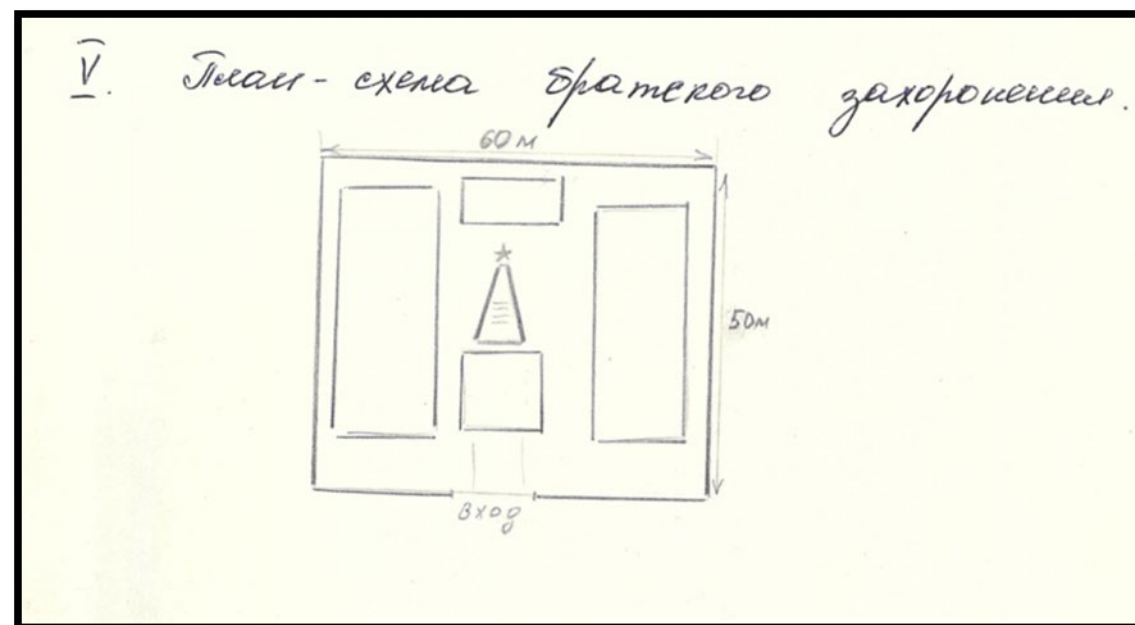 V. План-схема братского захоронения.
60 м
50м
вход